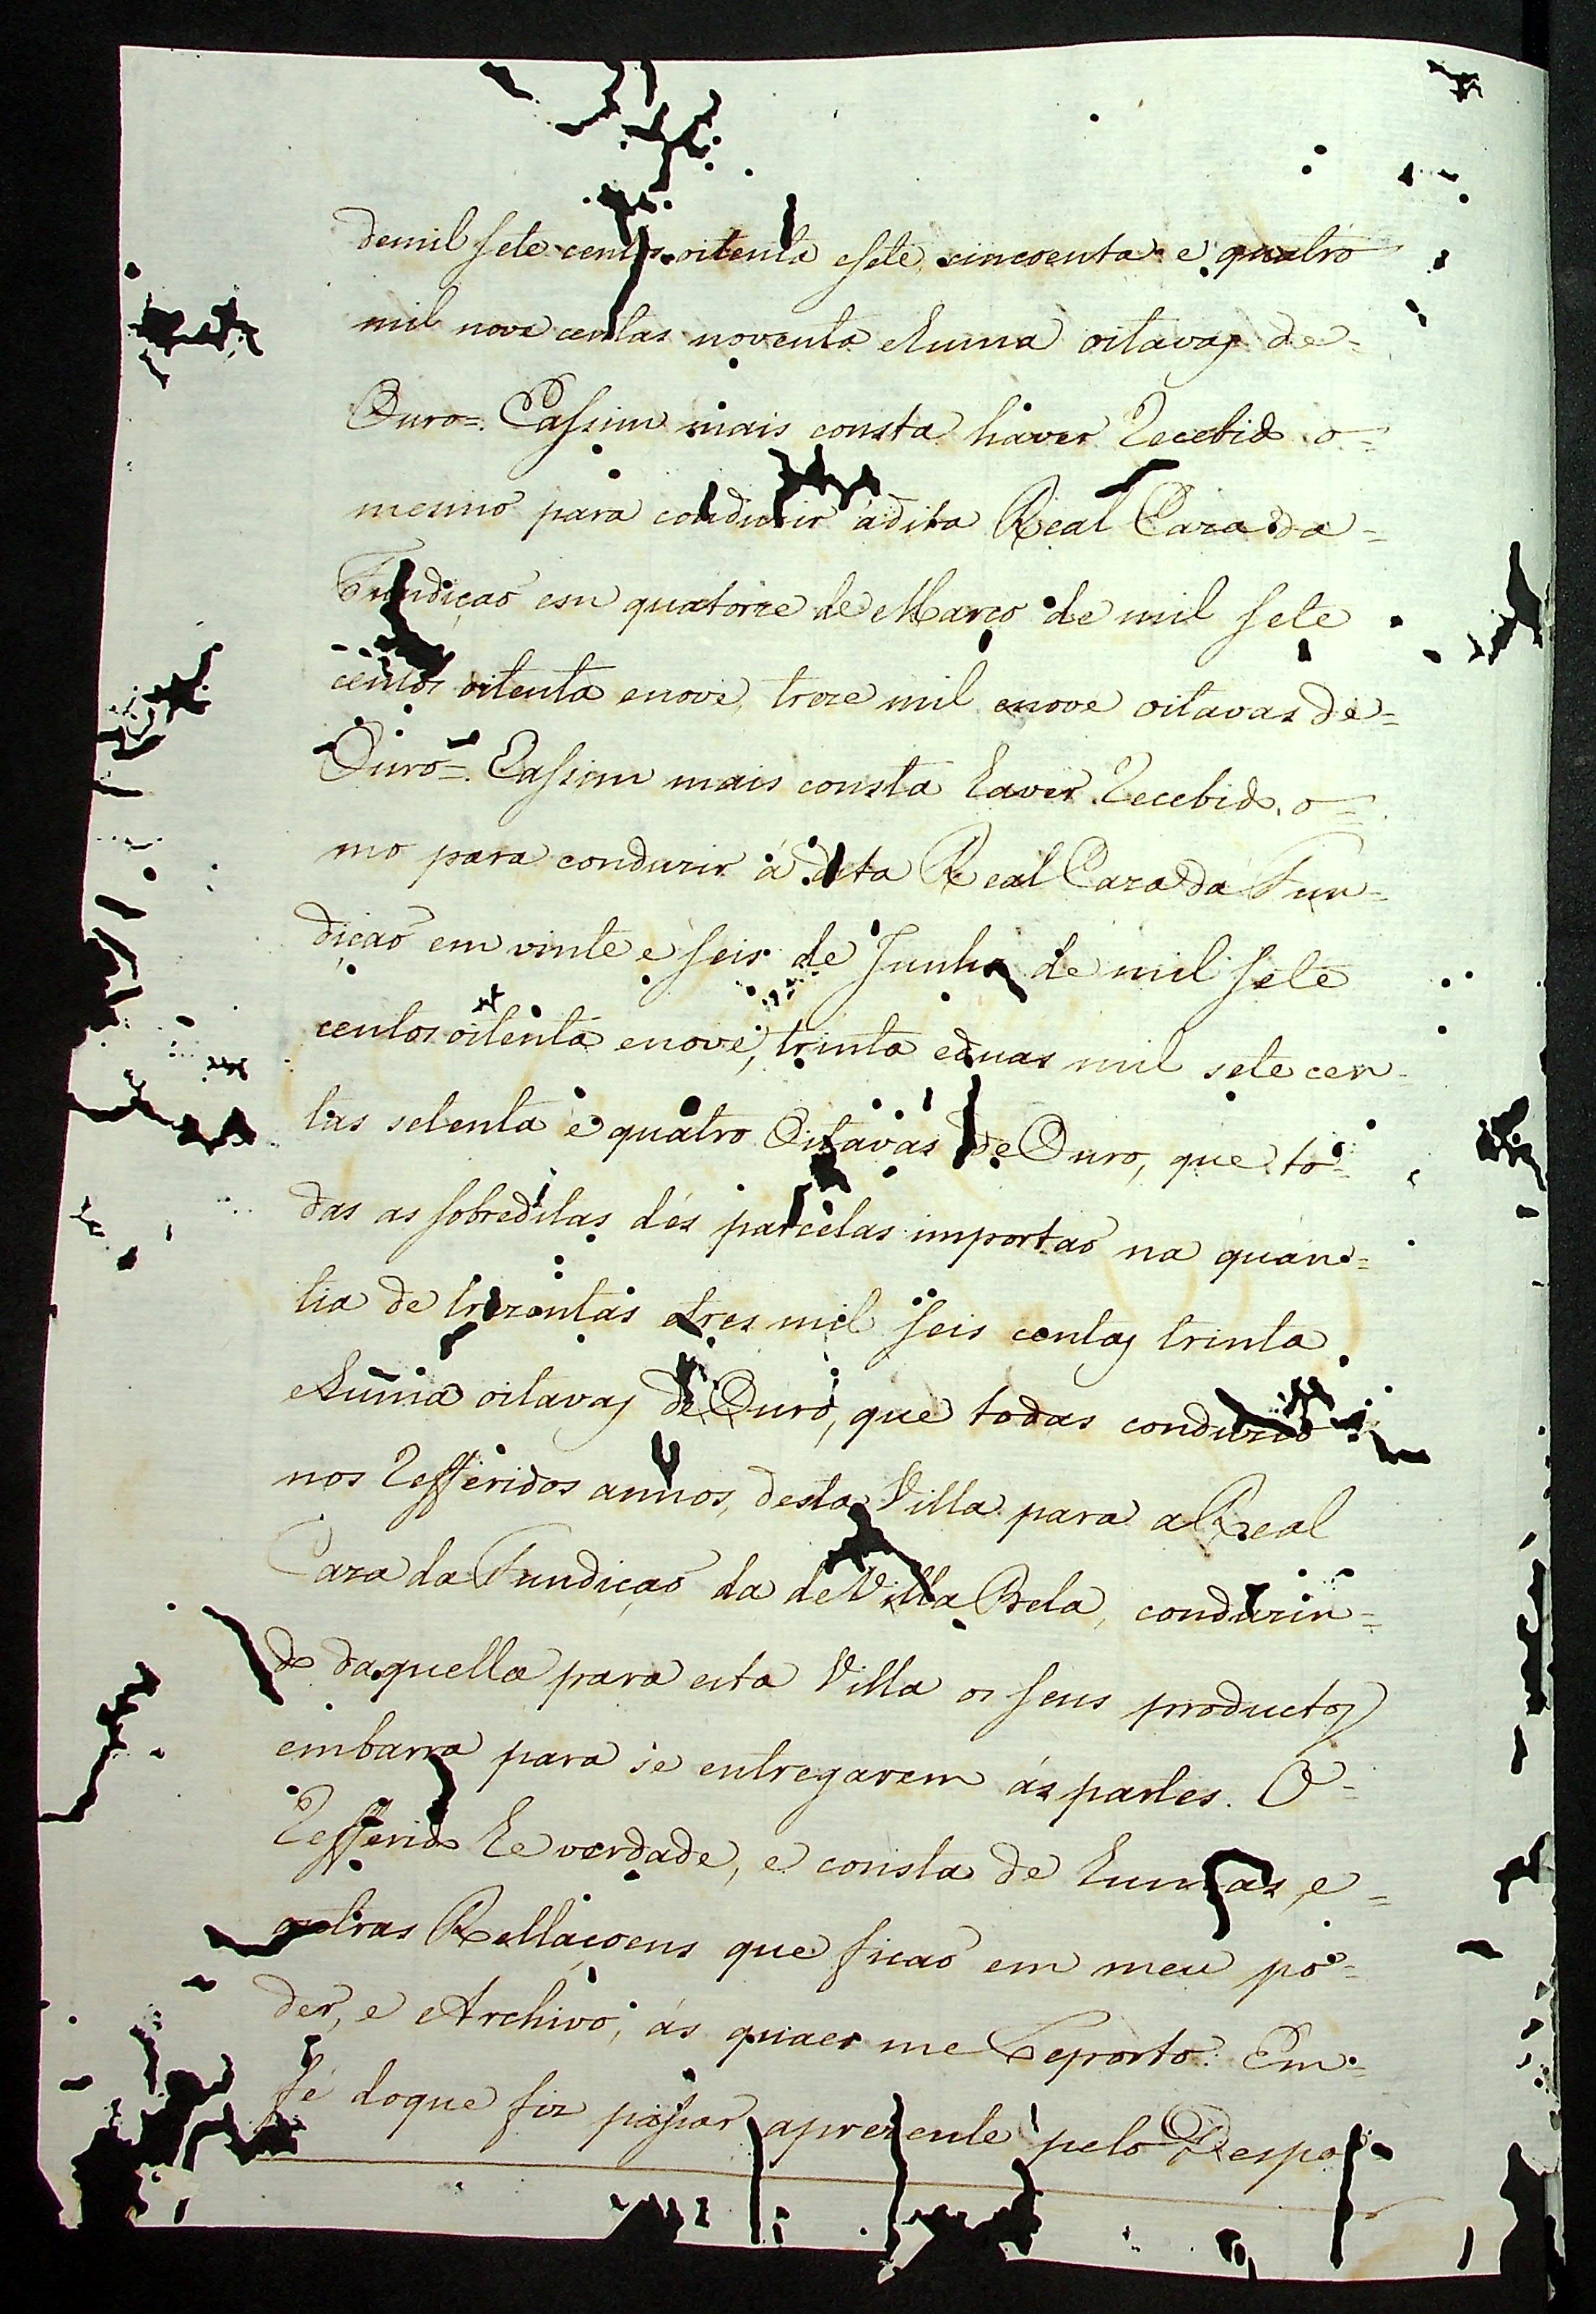 demil sete centos oitenta esete, sincoenta e quatro
mil nove centas noventa ehuma oitavas de=
Ouro=. Eassim mais consta haver Recebido o=
mesmo para conduzir ádita Real Caza da=
Fundiçaõ em quatorze de Março de mil sete
centos oitenta enove, treze mil enove oitavas de=
Ouro=. Eassim mais consta haver Recebido, o=
mo para conduzir á dita Real Caza da Fun=
diçaõ em vinte e seis de Junho de mil sete
centos oitenta enove, trinta eduas mil sete cen=
tas setenta e quatro Oitavas de Ouro, que to=
das as sobreditas dés parcelas importaõ na quan=
tia de trezentas etres mil seis centas trinta
ehuma oitavas de Ouro, que todas conduzio
nos Refferidos annos, desta Villa para a Real
Caza da Fundiçaõ da de Villa Bela, conduzin=
do daquella para esta Villa os seus productos
embarra para se entregarem ás partes. O=
Refferido he verdade, e consta de humas, e=
outras Rellaçoens que ficaõ em meu po=
der, e Archivo, ás quaes me Reporto. Em=
fé doque fiz passar aprezente pelo Despo